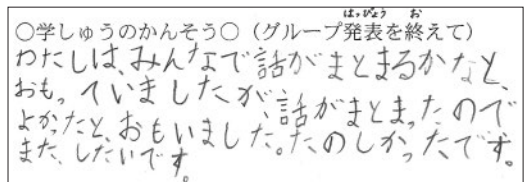 はっぴょう お
○学しゅうのかんそう○(グループ発表を終えて)
わたしは、みんなで話がまとまるかなと、
おもっていましたが、話がまとまったので
よかったと、おもいました。たのしかったです。
また、したいです。